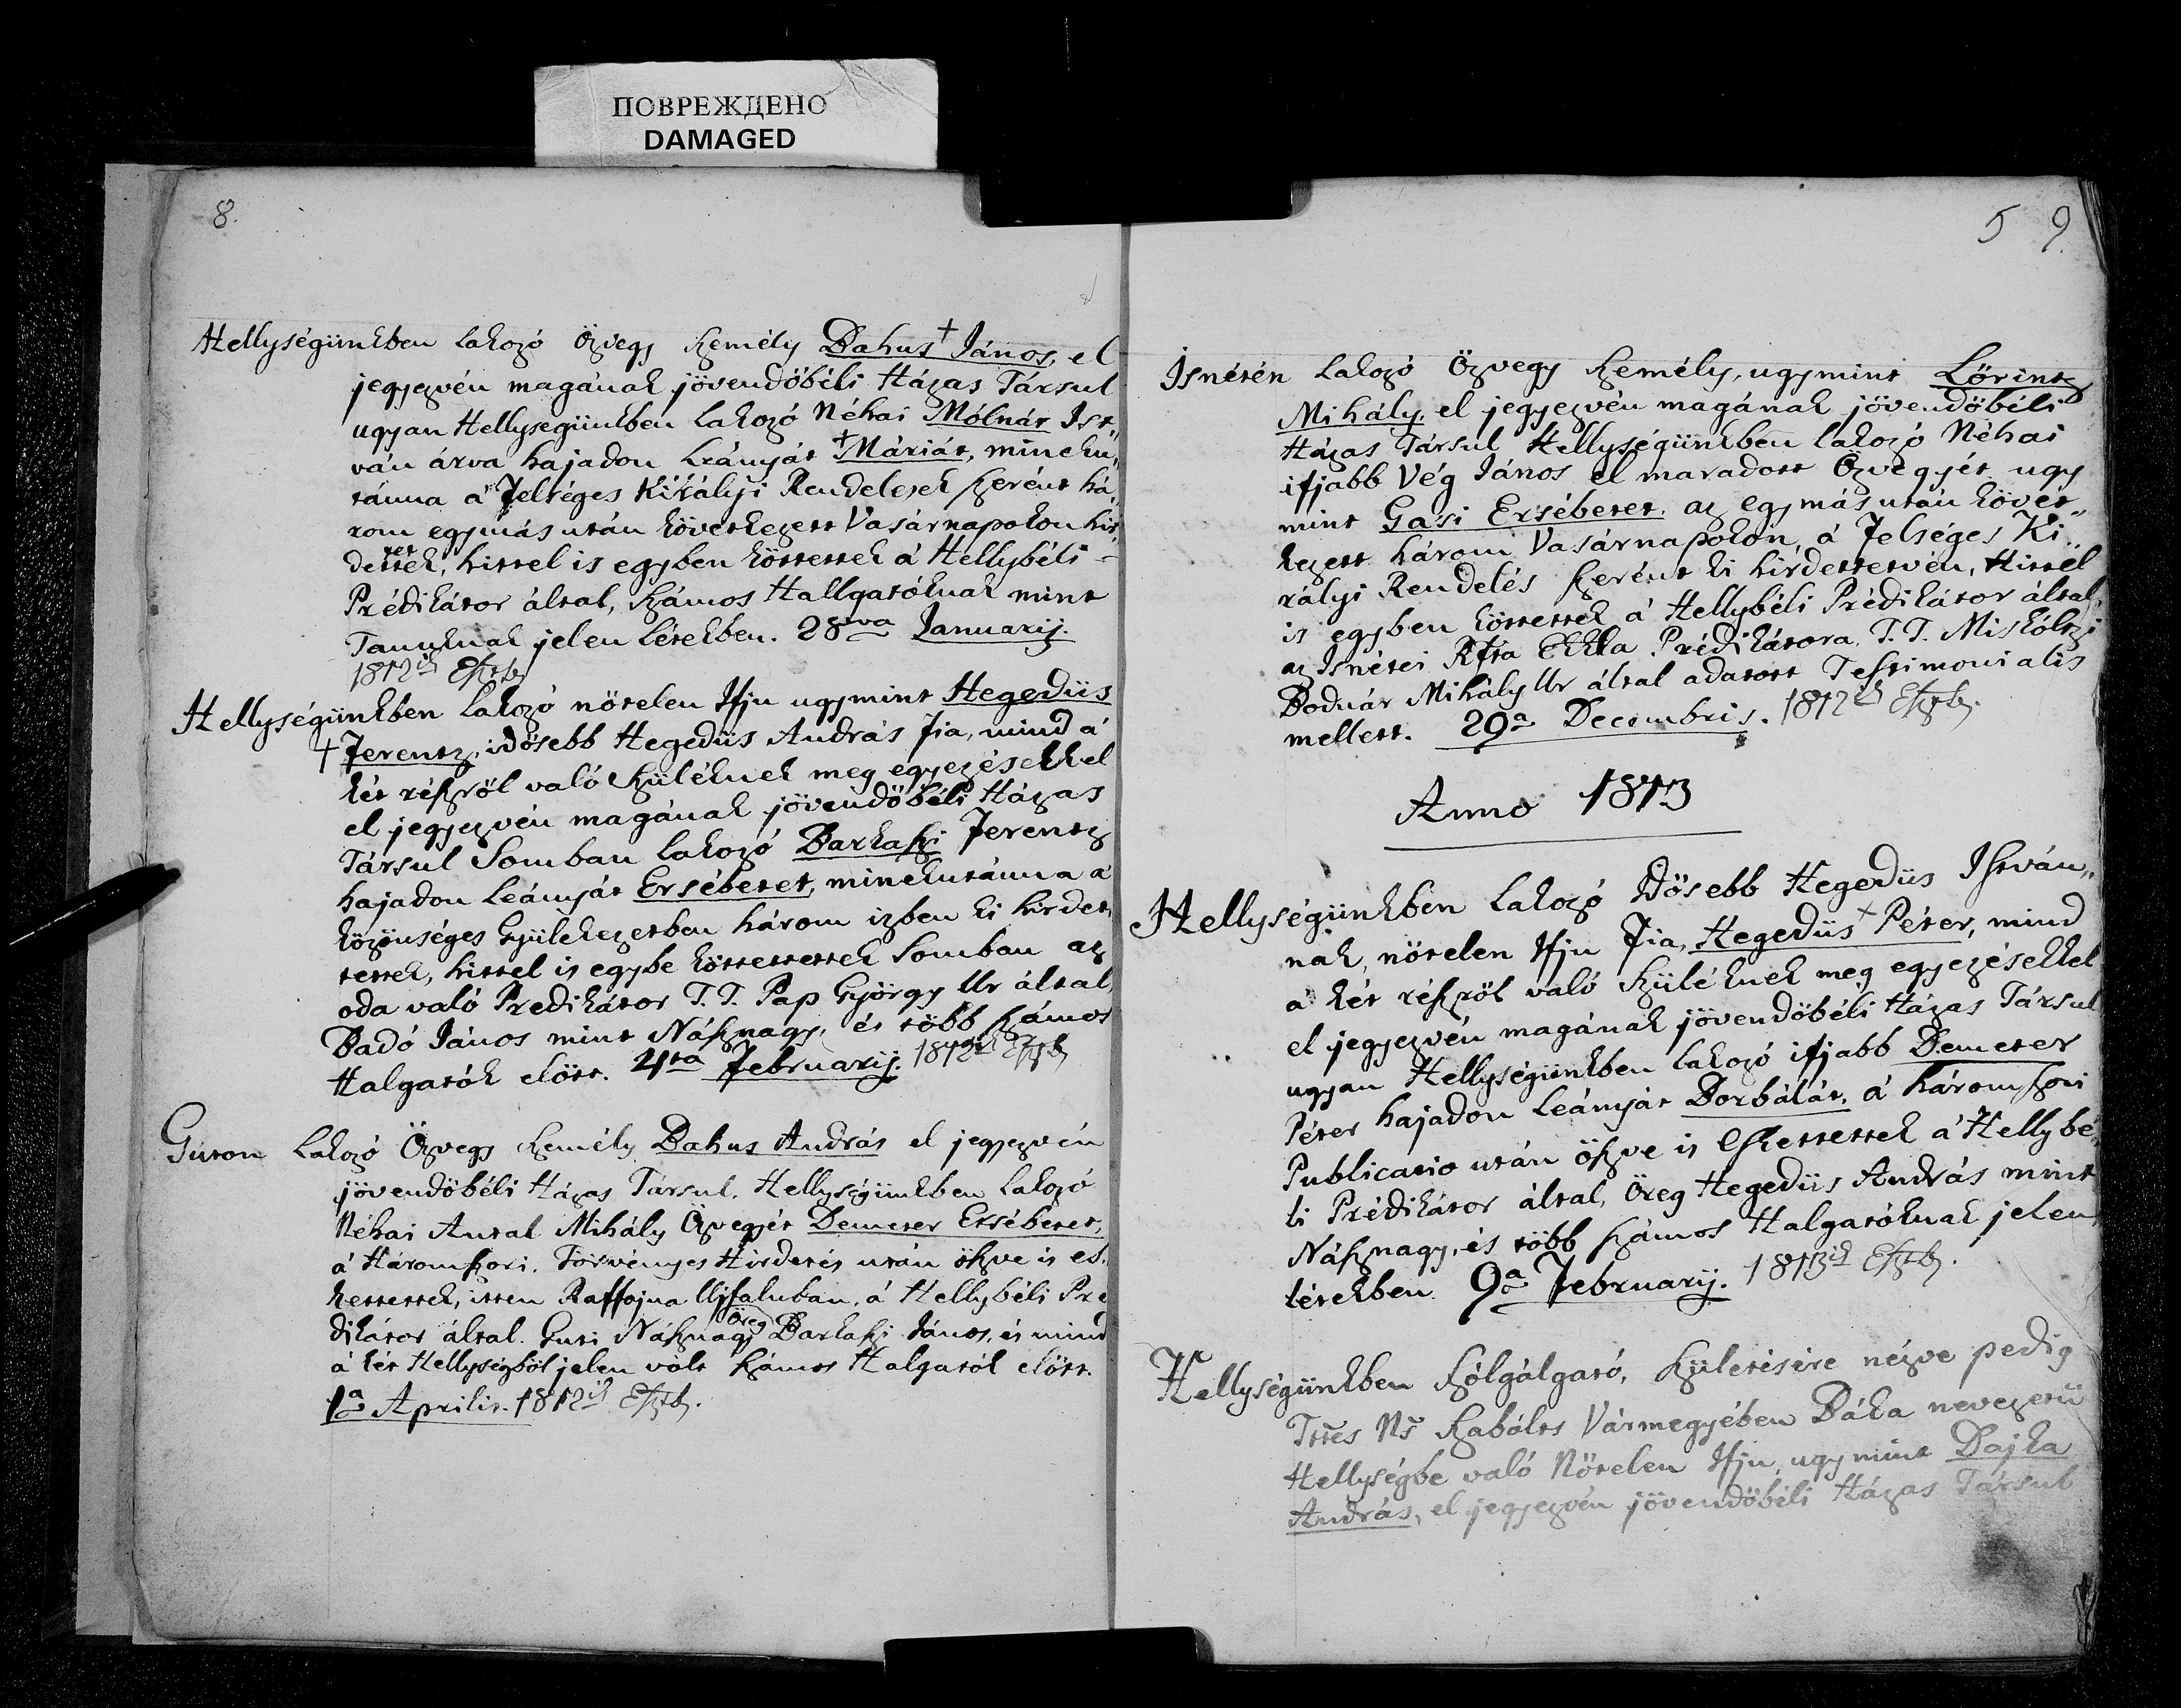 ПОВРЕЖДЕНО
DAMAGED
8.
Hellységünkben lakozó özvegy személy Bakus János, el
jegyezvén magának jövendőbéli Házas Társul
ugyan Hellységünkben lakozó Néhai Mólnár Ist„
ván árva hajadon leányát Máriát, mineku„
tánna a' Felséges Királyi Rendelések szerént há„
rom egymás után következett Vasárnapokon hir„
dettettek, hittel is egyben köttettek á Hellybéli
Prédikátor által, számos Hallgatóknak mint
Tanuknak jelen létekben. 28va Januarij.
1812ik Esztb
Hellységünkben lakozó nőtelen Ifju ugymint Hegedüs
+ Ferentz, idősebb Hegedüs András fia, mind á
két részről való szüléknek meg egyezésekkel
el jegyezvén magának jövendőbéli Házas
Társul Somban lakozó Barkaszi Ferentz
hajadon leányát Ersébetet, minekutánna á
közönséges Gyülekezetben három izben ki hirdet„
tettek, hittel is egybe köttettettek Somban az
oda való Predikátor T. T. Pap György Ur által,
Badó János mint Násznagy, és több számos
Halgatók előtt. 4ta Februarij. 1812ik Esztb
Guton lakozó Özvegy személy Bakus András el jegyezvén
jövendőbéli Házas Társul, Hellységünkben lakozó
Néhai Antal Mihály Özvegyét Demeter Ersébetet,
á Háromszori Törvényes Hirdetés után öszve is es„
kettettek, itten Raffajna Ujfaluban, á Hellybéli Pre
dikátor által. Guti Násznagy Öreg Barkaszi János, és mind
á két Hellységböl jelen vólt számos Halgatók előtt.
1a Aprilis. 1812ik Esztb.
5 9.
Isnétén lakozó Özvegy személy, ugymint Lőrintz
Mihály, el jegyezvén magának jövendőbéli
Házas Társul Hellységünkben lakozó Néhai
ifjabb Vég János el maradott Özvegyét, ugy
mint Gasi Ersébetet, az egymás után követ„
kezett három Vasárnapokon, á Felséges Ki„
rályi Rendelés szerént ki hirdettetvén, Hittel
is egyben köttettek á Hellybéli Prédikátor által,
az Isnétei Rfta Ekkla Prédikátora T. T. Miskóltzi
Bodnár Mihály Ur által adatott Testimonialis
mellett. 29a Decembris. 1812ik Esztb.
Anno 1813
Hellységünkben lakozó Idősebb Hegedüs István„
nak, nőtelen Ifju Fia, Hegedüs Péter, mind
a két részröl való szüléknek meg egyezésekkel
el jegyezvén magának jövendőbéli Házas Társul
ugyan Hellységünkben lakozó ifjabb Demeter
Péter hajadon leányát Borbálát, á háromszori
Publicatio után öszve is eskettettek á Hellybé„
li Prédikátor által, Öreg Hegedüs András mint
Násznagy, és több számos Halgatóknak jelen
létekben 9a Februarij. 1813ik Esztb.
Hellységünkben szólgálgató, születésére nézve pedig
Ttes Ns Szabólts Vármegyében Báka nevezetü
Hellységbe való Nőtelen Ifju, ugymint Dajka
András, el jegyezvén jövendőbéli Házas Társul